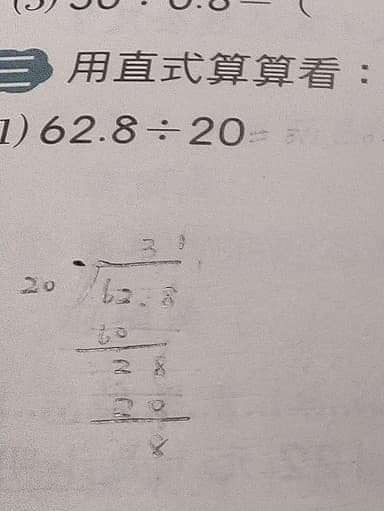 三 用直式算算看：
1) 62.8÷20=
3 1
20 62.8
60
2 8
2 0
8